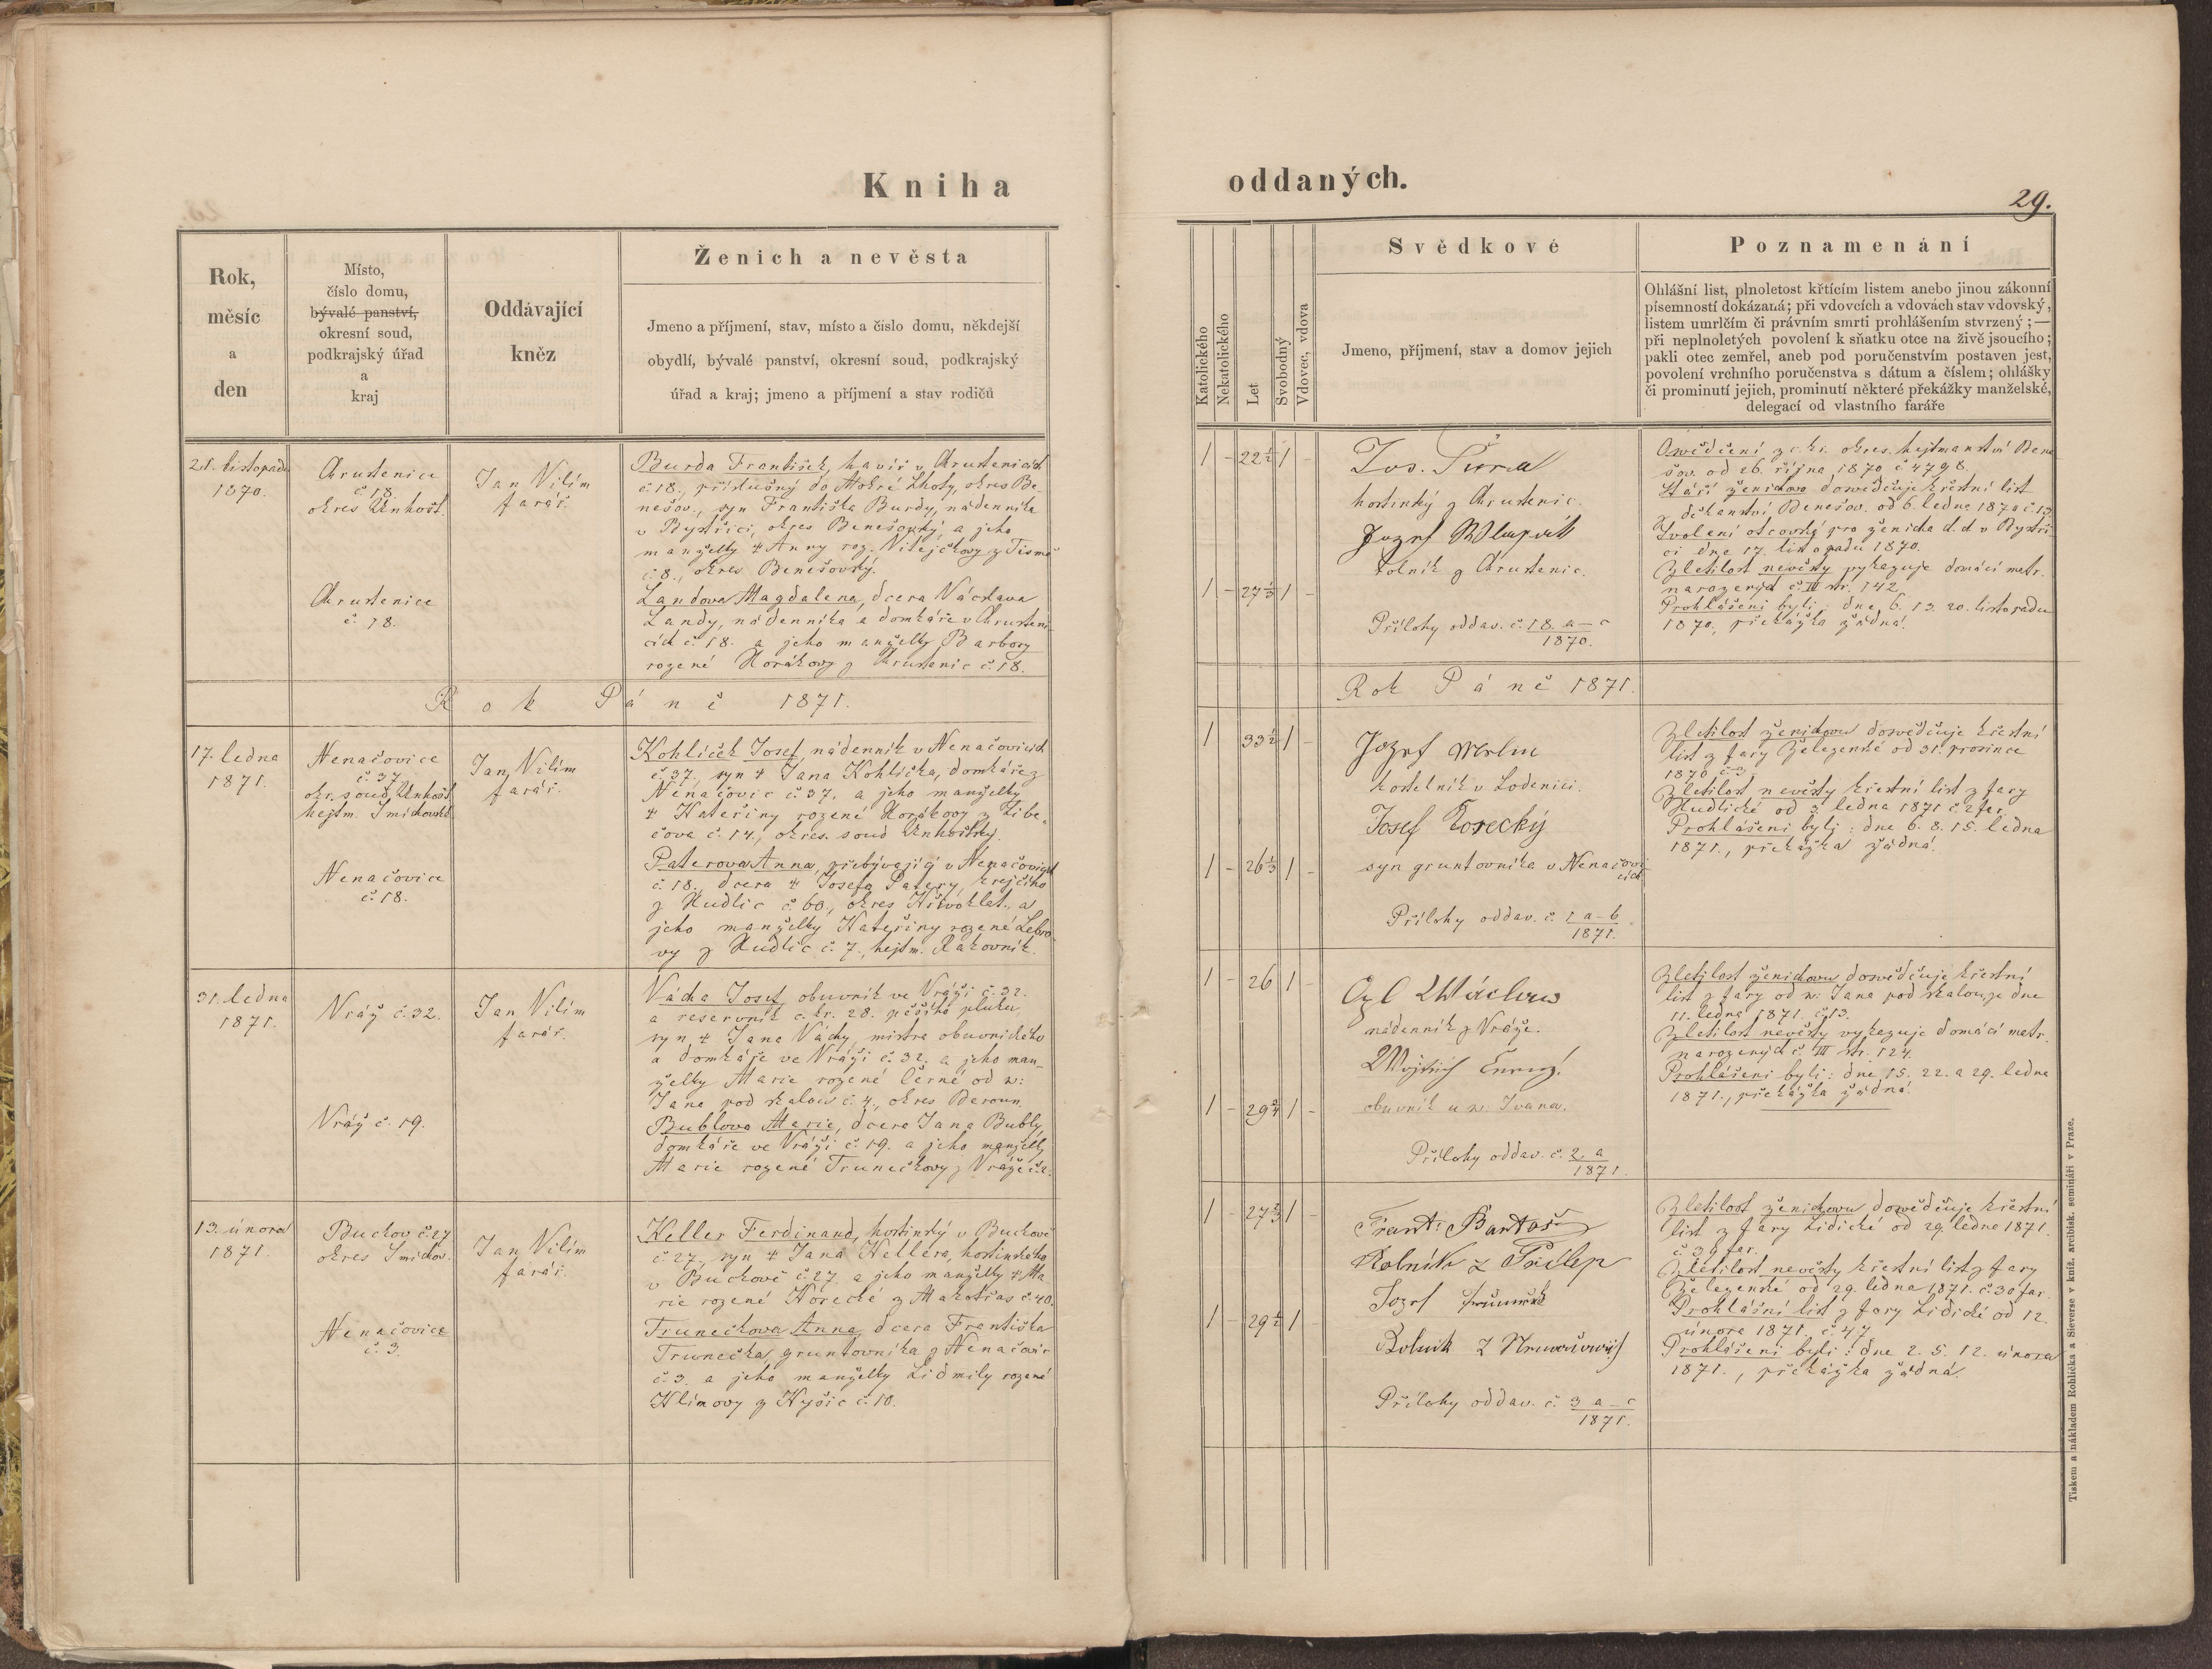 Kniha
oddaných.
29.
Rok,
měsíc
a
den
Místo,
číslo domu,
bývalé panství,
okresní soud,
podkrajský úřad
a
kraj
Oddávající
kněz
Ženich a nevěsta
Jmeno a příjmení, stav, místo a číslo domu, někdejší
obydlí, bývalé panství, okresní soud, podkrajský
úřad a kraj; jmeno a příjmení a stav rodičů
Katolického
Nekatolického
Let
Svobodný
Vdovec, vdova
Svědkové
Jmeno, příjmení, stav a domov jejich
Poznamenání
Ohlášní list, plnoletost křtícím listem anebo jinou zákonní
písemností dokázaná; při vdovcích a vdovách stav vdovský,
listem umrlčím či právním smrti prohlášením stvrzený; —
při neplnoletých povolení k sňatku otce na živě jsoucího;
pakli otec zemřel, aneb pod poručenstvím postaven jest,
povolení vrchního poručenstva s dátum a číslem; ohlášky
či prominutí jejich, prominutí některé překážky manželské,
delegací od vlastního faráře
21. listopadu
1870.
Chrustenice
č 18.
okres Unhošt.
Jan Vilím
farář.
Burda František, havíř v Chrustenicích
č 18., příslušný do Mokré Lhoty, okres Be-
nešov., syn Františka Burdy, nádenníka
v Bystřici, okres Benešovský a jeho
manželky Anny roz. z Tisme
č 8., okres Benešovský.
Chrustenice
č. 18.
Landova Magdalena, dcera Václava
Landy, nádenníka a domkáře v Chrusteni-
cích č. 18. a jeho manželky Barbory
rozené Horákovy z Chrustenic č. 18.
1 - 22½ 1 -
Jos.
hostinský z Chrustenic.
Jozef
rolník z Chrustenic.
1 - 27⅓ 1 -
Přílohy oddav. č. 18. a-c
1870.
Osvědčení z c. kr. okres. hejtmanství Bene
šov. od 26. října 1870 č 4798.
Stáří ženichovo dosvědčuje křestní list
z děkanství Benešov. od 6. ledna 1870 č 13
Svolení otcovské pro ženicha d. d. v Bystři
ci dne 17. listopadu 1870.
Zletilost nevěsty vykazuje domácí matr.
narozených č. III str. 142.
Prohlášeni byli: dne 6. 13. 20. listopadu
1870., překážka žádná.
Rok Páně 1871.
Rok Páně 1871.
17. ledna
1871.
Nenačovice
č. 37.
okr. soud Unhošt
hejtm. Smíchovské
Jan Vilím
farář.
Kohlíček Josef, nádenník v Nenačovicích
č. 37., syn Jana Kohlíčka, domkáře z
Nenačovic č. 37. a jeho manželky
Kateřiny rozené Horákovy z Libe-
čova č. 14., okres. soud Unhoštský.
Nenačovice
č. 18.
Paterova Anna, přebývající v Nenačovicích
č. 18., dcera Josefa Patery, krejčího
z Hudlic č. 60., okres Křivoklat., a
jeho manželky Kateřiny rozené
vy z Hudlic č. 7., hejtm. Rakovník.
1 33½ 1 -
Jozef
kostelník v Lodenici.
Josef Horecký
syn gruntovníka v Nenačovi
cích
1 - 26⅓ 1 -
Přílohy oddav. č. 1 a-b
1871.
Zletilost ženichovu dosvědčuje křestní
list z fary Železenské od 31. prosince
1870
Zletilost nevěsty křestní list z fary
Hudlické od 3 ledna 1871 č 2 far.
Prohlášeni byli: dne 6. 8. 15. ledna
1871., překážka žádná.
31. ledna
1871.
Vráž č. 32.
Jan Vilím
farář.
Vácha Josef, obuvník ve Vráži č. 32.
a reservník c. kr. 28. pěšího pluku,
syn Jana Váchy, mistra obuvnického
a domkáře ve Vráži č. 32. a jeho man-
želky Marie rozené Černé od sv.
Jana pod skalou č. 4., okres Beroun.
Vráž č. 19.
Bublova Marie, dcera Jana Bubly,
domkáře ve Vráži č. 19. a jeho manželky
Marie rozené Trunečkovy z Vráže
1 - 26 1 -
Václaw
nádenník z Vráže.
Wojtěch Černý.
obuvník u sv. Ivana.
1 - 29¾ 1 -
Přílohy oddav. č. 2. a
1871.
Zletilost ženichovu dosvědčuje křestní
list z fary od sv. Jana pod skalou, ze dne
11. ledna 1871. č. 13.
Zletilost nevěsty vykazuje domácí matr.
narozených č. III str. 124.
Prohlášeni byli: dne 15. 22. a 29. ledna
1871., překážka žádná.
13. února
1871.
Buchov č. 27
okres Smíchov.
Jan Vilím
farář.
Keller Ferdinand, hostinský v Buchově
č. 27., syn Jana Kellera, hostinského
v Buchově č. 27. a jeho manželky Ma
rie rozené Horecké z Makotřas č. 40.
Nenačovice
č. 3.
Trunečkova Anna, dcera Františka
Trunečka, gruntovníka z Nenačovic
č. 3. a jeho manželky Lidmily rozené
Klímovy z Kyšic č. 10.
1 - 27⅔ 1 -
Frant. Bartoš
Rolník z Přílep
Jozef
Rolnik z
1 - 29½ 1 -
Přílohy oddav. č. 3 a-c
1871.
Zletilost ženichovu dosvědčuje křestní
list z fary Lidické od 29. ledna 1871
č. 39 far.
Zletilost nevěsty křestní list z fary
Železenské od 29. ledna 1871. č. 30 far.
Prohlášní list z fary Lidické od 12.
února 1871. č. 47
Prohlášeni byli: dne 2. 5. 12. února
1871., překážka žádná.
Tiskem a nákladem Rohlíčka a Sieverse v kníž. arcibisk. semináři v Praze.